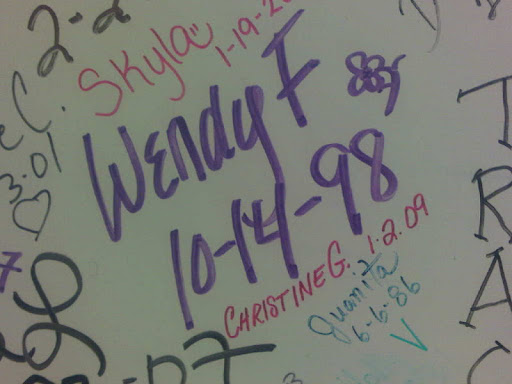 2-2
Skyla
1-19-20
C.
3.01
Wendy F
10-14-98
CHRISTINE G. 1.2.09
Juanita
6-6-86
TRAC